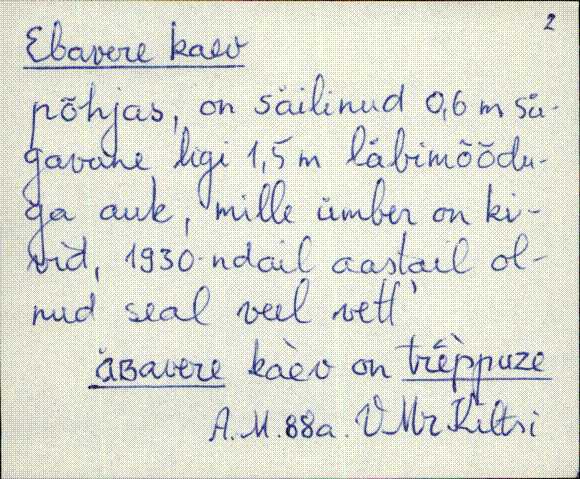 2
Ebavere kaev
põhjas, on säilinud 0,6 m sü-
gavune ligi 1,5 m läbimõõdu-
ga auk, mille ümber on ki-
vid, 1930-ndail aastail ol-
nud seal veel vett'
äʙavere kàev on
A.M. 88a. VMr Kiltsi